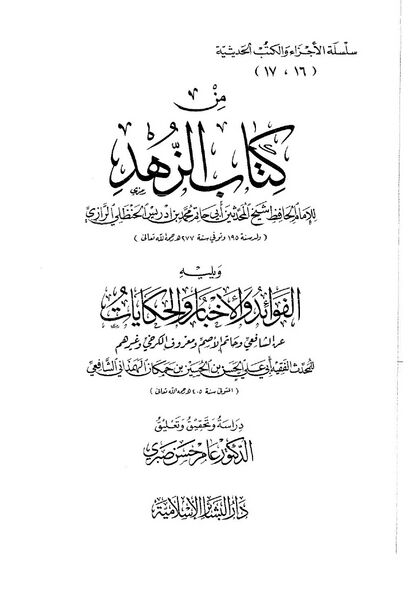 سلسلة الأجزاء والكتب الحديثية
( ١٦ ، ١٧ )
من
كتاب الزهد
للإمام الحافظ شيخ المحدثين أبي حاتم محمد بن إدريس الحنظلي الرازي
( ولد سنة ١٩٥ وتوفي سنة ٢٧٧ هـ رحمه الله تعالى )
ويليه
الفوائد والأخبار والحكايات
عن الشافعي وحاتم الأصم ومعروف الكرخي وغيرهم
للمحدث الفقيه أبي علي الحسن بن الحسين بن حمكان الهمذاني الشافعي
( المتوفى سنة ٤٠٥ هـ رحمه الله تعالى )
دراسة وتحقيق وتعليق
الدكتور عامر حسن صبري
دار البشائر الإسلامية